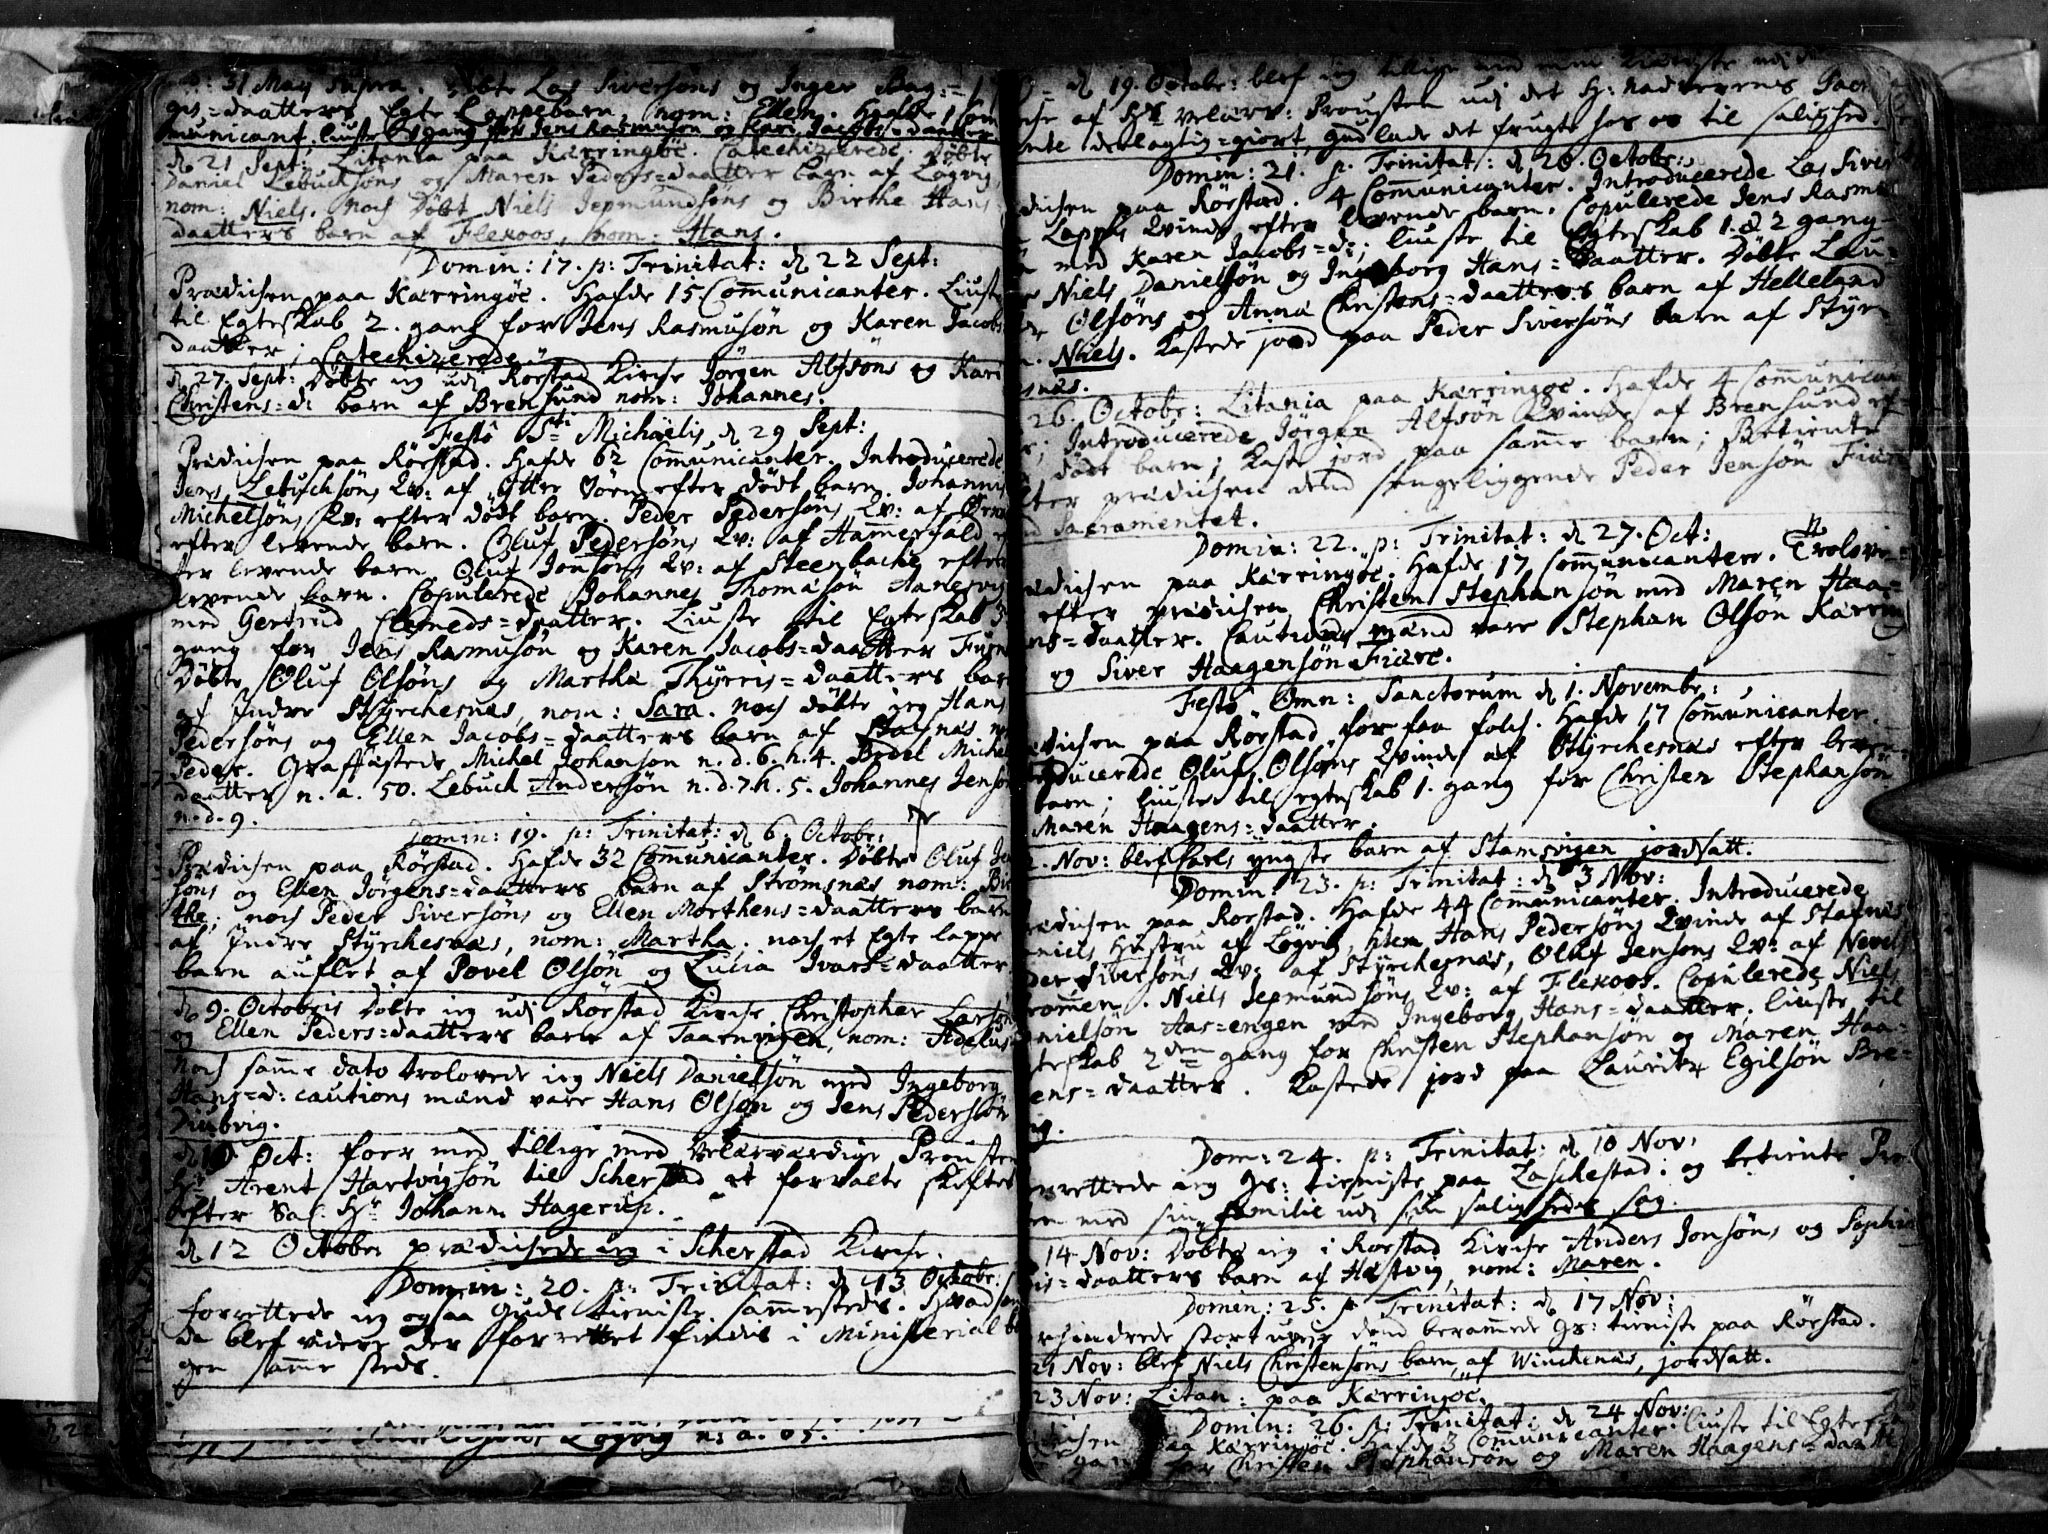 31 May supra. Døbte Las Siversøns og Inger Bag:
gis=daatters Egte Lappebarn, nom: Ellen. Hafde 1 Com
municant. liuste 1 gang for Jens Rasmusøn og Kari Jacobs=daatter
d 21 Sept: Litania paa Kærringøe. Catechizerede. Døbte
Daniel Lebuchsøns og Maren Peders=daatter barn af Løgvig,
nom: Niels. noch Døbt Niels Jepmundsøns og Birthe Hans
daatters barn af Flexoos, nom: Hans.
Domin: 17. p: Trinitat: d 22 Sept:
Prædichen paa Kærringøe. Hafde 15 Communicanter. Liuste
til Egteskab 2. gang for Jens Rasmusøn og Karen Jacobs
daatter; Catechizerede.
d 27. Sept: Døbte ieg udi Rørstad Kirche Jørgen Alfsøns og Kari
Christens=d: barn af Brensund nom: Johannes.
Festo Sti Michaelis, d 29 Sept:
Prædichen paa Rørstad. Hafde 62 Communicanter. Introducerede
Jens Lebuchsøns Qv: af Ytter Sørn efter dødt barn. Johannis
Michelsøns Qv: efter dødt barn. Peder Pedersøns Qv: af Ørn
efter levende barn. Oluf Pedersøns Qv: af Hammerfald ef
ter levende barn. Oluf Jonsøns Qv: af Steenbache efter
levende barn. Copulerede Johannes Thomasøn Hanesvig
med Gertrud Clemeds=daatter. Liuste til Egteskab 3
gang for Jens Rasmusøn og Karen Jacobs=daatter
Døbte Oluf Olsøns og Martha Thyrris=daatters barn
af Indre Styrchesnæs, nom: Sara. noch døbte ieg Hans
Pedersøns og Ellen Jacobs=daatters barn af Stafnæs. n
Peder. Graffæstede Michel Johanson n. d. 6. h. 4. Bodel Michel
daatter n. a. 50. Lebuch Andersøn n. d. 7. h. 5. Johannes Jensøn
n. d. 9.
Domin: 19. p: Trinitat: d 6. Octobr:
Prædichen paa Rørstad. Hafde 32 Communicanter. Døbte Oluf Jon
søns og Ellen Jørgens=daatters barn af Strømsnæs nom: Bir
the; noch Peder Siversøns og Ellen Morthens=daatters barn
af Indre Styrchesnæs, nom: Martha. noch et Egte lappe
barn auflet af Povel Olsøn og Lucia Ivars=daatter.
d 9. Octobris Døbte ieg udi Rørstad Kirche Christopher Larsøns
og Ellen Peders=daatters barn af Taarnvigen, nom:
Noch samme dato trolovede ieg Niels Danielsøn med Ingeborg
Hans=d: cautions mænd vare Hans Olsøn og Jens Pedersøn
Diubvig.
d 10 Oct: foer med tillige med Velærværdige Prousten
Hr Arent Hartvigsøn til Scherstad at forvalte skiftet
efter Sal: Hr Johann Hagerup.
d 12 Octobr: prædichede ieg i Scherstad Kirche.
Domin: 20. p: Trinitat: d 13 Octobr:
forrettede ieg ogsaa Guds tieniste sammesteds. Hvad som
da blef videre der forrettet findis i Ministerial bo
gen samme steds.
Løgvig n: a. 05.
d 19. Octobr: blef ieg tillige med min Kiæreste udi
af Hr velærv: Prousten udi det H: nadverens Sacra
mente deelagtig=giort, Gud lade det frugte hos os til salighed.
Domin: 21. p. Trinitat: d 20. Octobr:
dichen paa Rørstad. 4 Communicanter. Introducerede Las Siver
Lappes Qvinde efter levende barn. Copulerede Jens Rasmus
med Karen Jacobs=d:; liuste til Egteskab 1. & 2 gang
Niels Danielsøn og Ingeborg Hans=daatter. Døbte Lau=
Olsøns og Anna Christens=daatters barn af Helleland
Niels. Kastede jord paa Peder Siversøns barn af Styr
snæs.
26. Octobr: Litania paa Kærringøe. Hafde 4 Communican
Introducerede Jørgen Alfsøn Qvinde af Brensund ef
dødt barn; Kaste jord paa samme barn; Betiente
efter prædichen dend sengeliggende Peder Jensøn
Sacramentet.
Domin: 22. p: Trinitat: d 27. Oct:
dichen paa Kærringøe. Hafde 17 Communicanter. Trolove=
efter prædichen Christen Stephansøn med Maren Haa=
ns=daatter. Cautions mænd vare Stephan Olsøn Kærring
og Siver Haagensøn Fiære.
Festo Omn: Sanctorum d 1. Novembr:
dichen paa Rørstad for faa folch. Hafde 17 Communicanter.
oducerede Oluf Olsøns Qvinde af Styrchesnæs efter
barn; liuste til egteskab 1. gang for Christen Stephansøn
Maren Haagens=daatter.
2. Nov: blef Karls yngste barn af Stamsvigen jordsatt.
Domin: 23. p: Trinitat: d 3 Nov:
rædichen paa Rørstad. Hafde 44 Communicanter. Introducerede
niels Hustru af Løgvig, item Hans Pedersøns Qvinde af Stafnæs
der Siversøns Qv: af Styrchesnæs, Oluf Jensøns Qv: af
rommen. Niels Jepmundsøns Qv: af Flexoos. Copulerede Niels
anielsøn Aas=engen med Ingeborg Hans=daatter. liuste til
teskab 2den gang for Christen Stephansøn og Maren Haa=
gens=daatter. Kastede jord paa Lauritz Egilsøn Bre=
vig.
Dom: 24. p: Trinitat: d 10 Nov:
orrettede ieg Gs: tieniste paa Laschestad: og betiente Pro
med sin familie udi sin saligheds sag.
14 Nov: Døbte ieg i Rørstad Kirche Anders Jonsøns og Sophia
is=daatters barn af Hestvig, nom: Maren.
Domin: 25. p Trinitat: d 17 Nov:
rhindrede stort uveir dend berammede Gs: tieniste paa Rørstad.
21 Nov: blef Niels Christensøns barn af Winchenæs, jordsatt.
23 Nov: Litan: paa Kærringøe.
Domin: 26. p: Trinitat: d 24 Nov:
dichen paa Kærringøe. Hafde 3 Communicanter. liuste til Egtes
gang for Christen Stephansøn og Maren Haagens=daatter